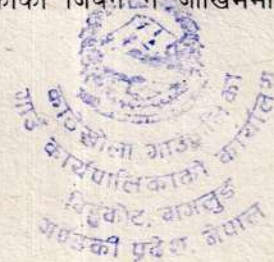 जोखिममा
काठेखोला गाउँपालिका
गाउँ कार्यपालिकाको कार्यालय
बिहुँकोट, बागलुङ
गण्डकी प्रदेश, नेपाल